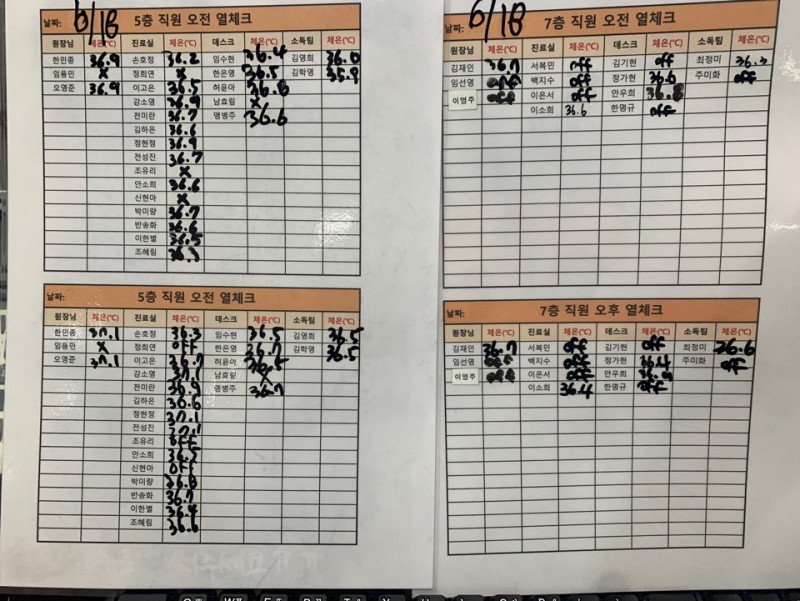 날짜: 6/18 5층 직원 오전 열체크
원장님 체온(℃) 진료실 체온(℃) 데스크 체온(℃) 소독팀 체온(℃)
한민종 36.9 손호정 36.2 임수현 36.4 김영희 36.0
임용민 X 정희연 X 한은영 36.5 김학영 35.9
오영준 36.9 이고은 36.5 허윤아 36.6
강소영 36.9 남효림 X
천미란 36.7 맹병주 36.6
김하은 36.6
정현정 36.9
전성진 36.7
조유리 X
안소희 36.6
신현아 X
박미량 36.7
반송화 36.6
이한별 36.5
조혜림
날짜: 5층 직원 오전 열체크
원장님 체온(℃) 진료실 체온(℃) 데스크 체온(℃) 소독팀 체온(℃)
한민종 37.1 손호정 36.3 임수현 36.5 김영희 36.5
임용민 X 정희연 OFF 한은영 36.7 김학영 36.5
오영준 37.1 이고은 36.7 허윤아
강소영 37.1 남효림 X
천미란 36.9 맹병주 36.7
김하은 36.6
정현정 37.1
전성진 37.1
조유리 OFF
안소희
신현아 OFF
박미량 36.8
반송화 36.7
이한별 36.4
조혜림 36.6
날짜: 6/18 7층 직원 오전 열체크
원장님 체온(℃) 진료실 체온(℃) 데스크 체온(℃) 소독팀 체온(℃)
김재인 36.7 서복민 off 김기현 off 최정미
임선영 off 백지수 off 정가현 36.6 주미화 off
이영주 off 이은서 off 안우희 36.8
이소희 36.6 한명규 off
날짜: 7층 직원 오후 열체크
원장님 체온(℃) 진료실 체온(℃) 데스크 체온(℃) 소독팀 체온(℃)
김재인 36.7 서복민 off 김기현 off 최정미 36.6
임선영 off 백지수 off 정가현 36.4 주미화 off
이영주 off 이은서 off 안우희
이소희 36.4 한명규 off